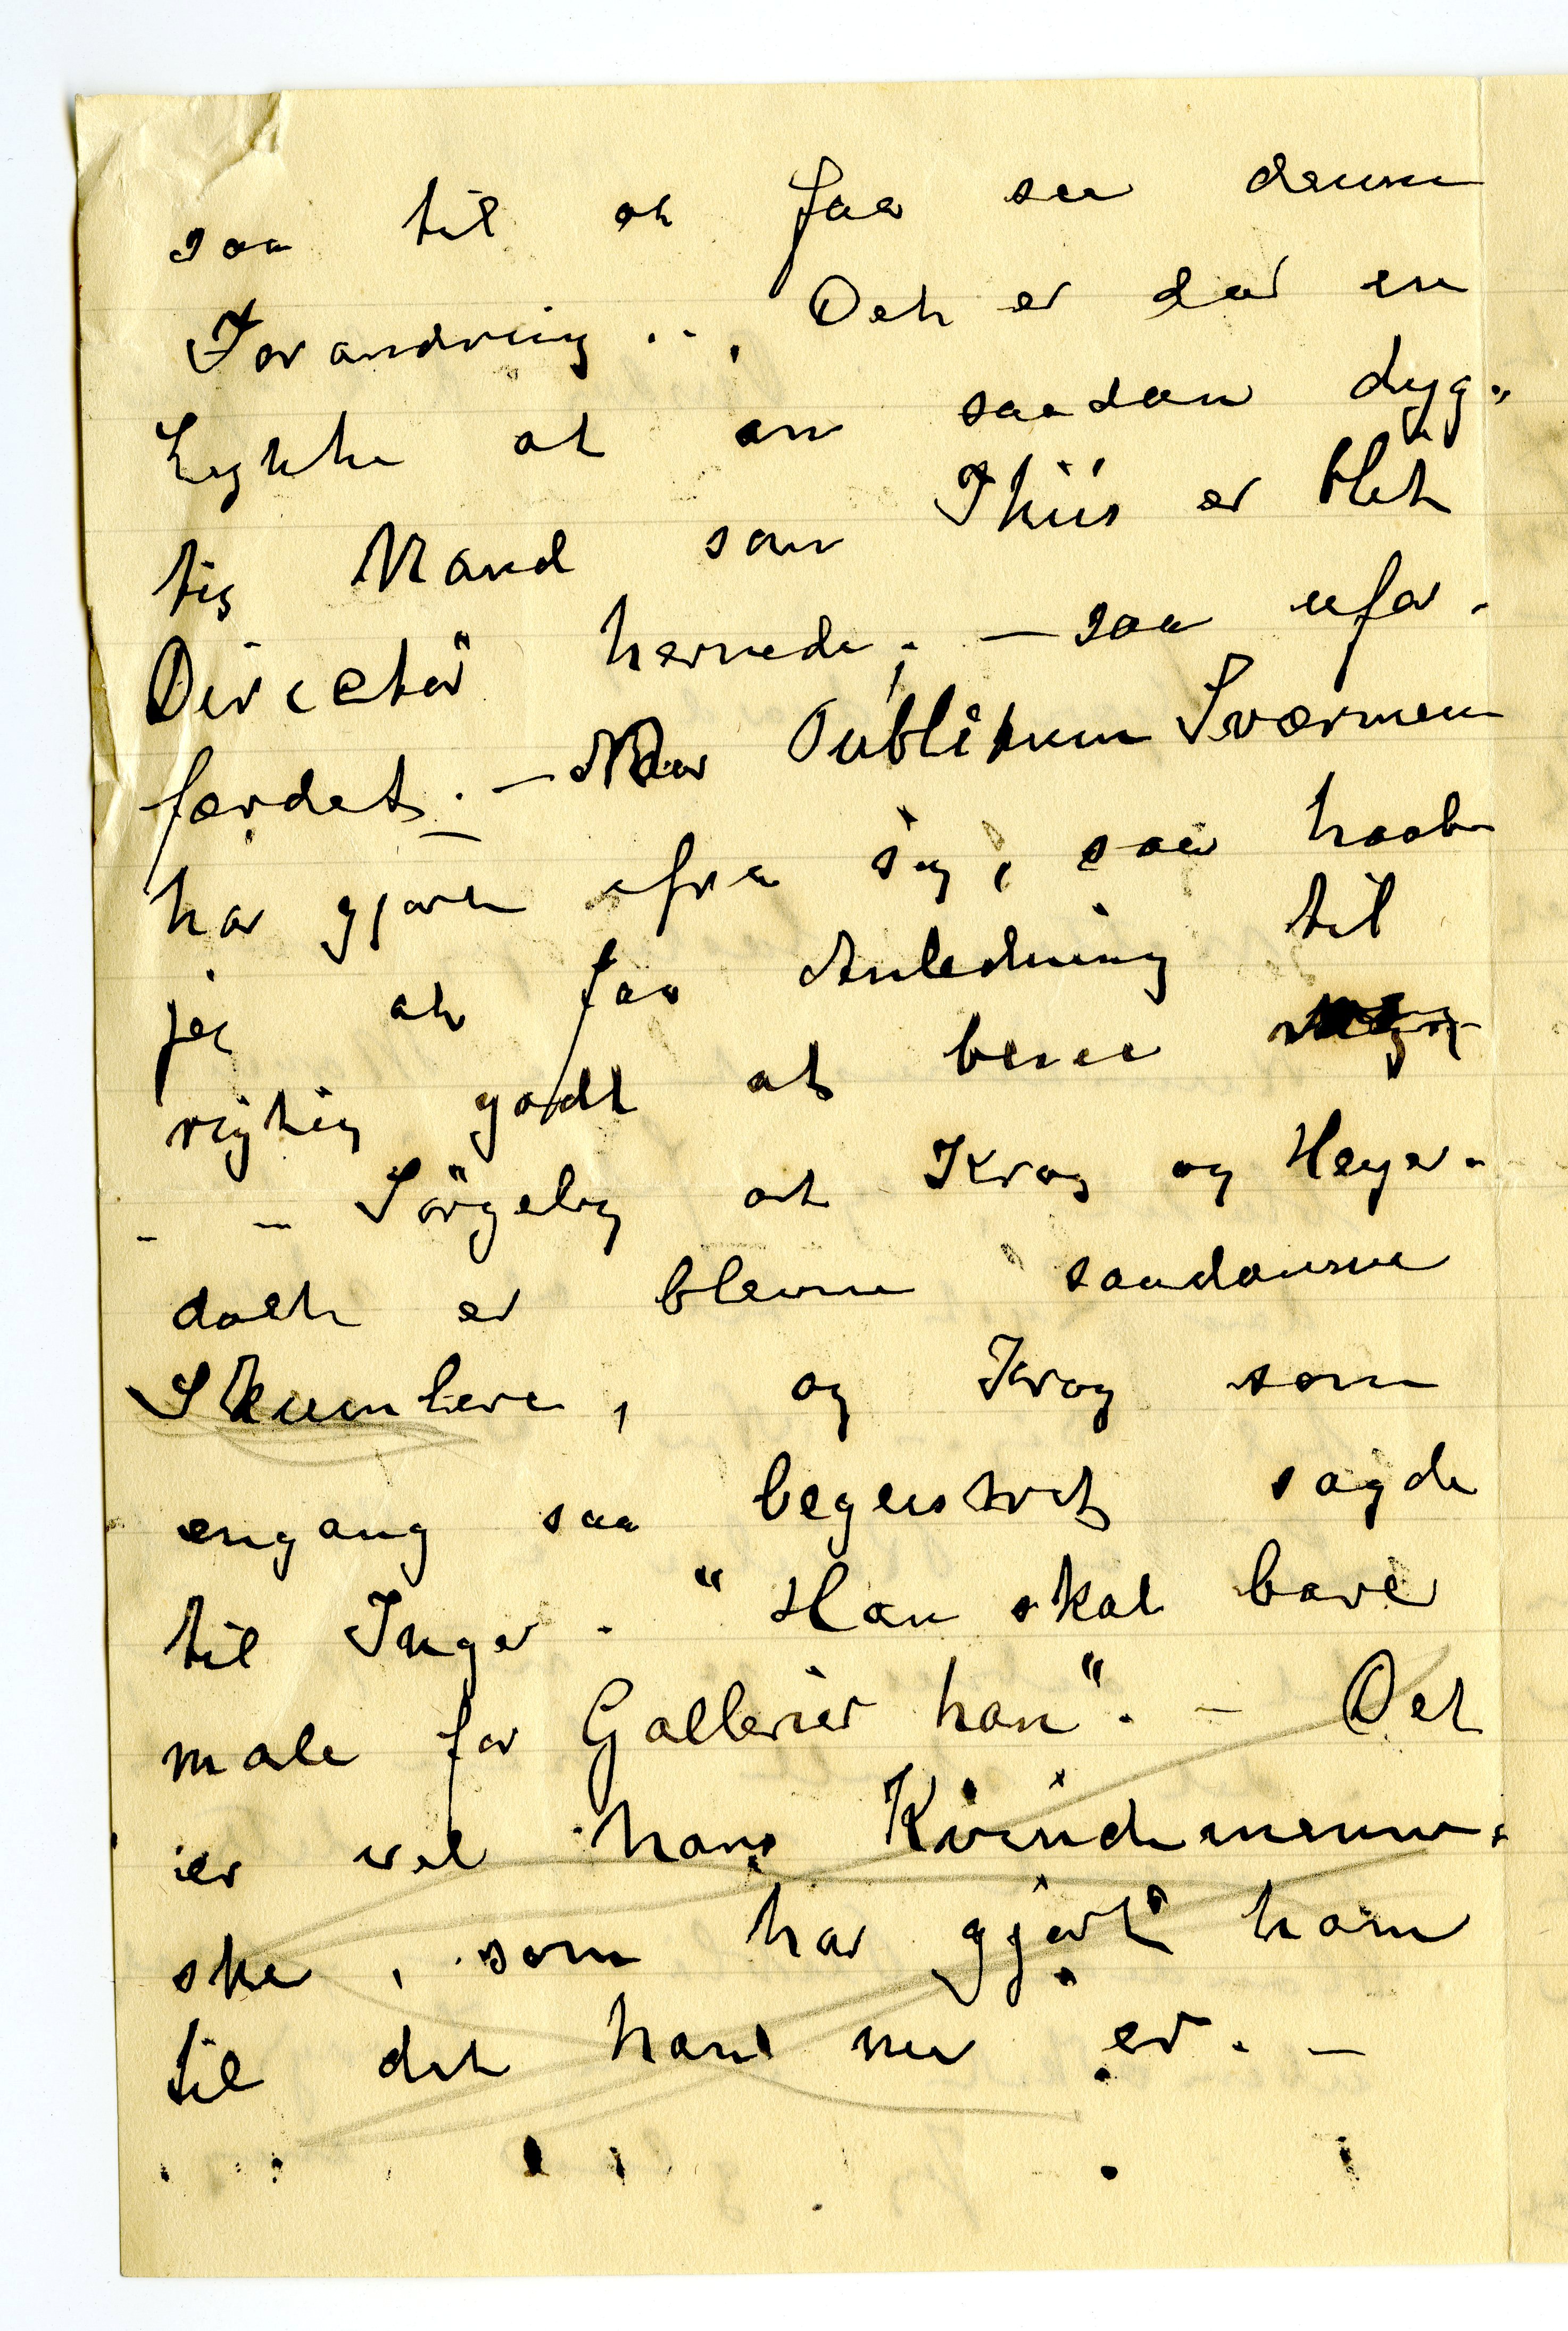 saa til at faa see denne
Forandring . . , Det er dar en
Lykke at en saadan dyg-
tig Mand som Thiis er blet
Directör hernede; — saa ufor-
færdet. — Naar Publikum Sværmen
har gjort fra sig, saa haaber
jeg at faa Anledning til
rigtig godt at bese
- – Sörgelig at Krog og Heyer-
dahl er blevne saadanne
Skumlere, og Krog som
engang saa begeistret sagde
til Inger. "Han skal bare
male for Gallerier han". – Det
er vel hans Kvindemenne-
ske, som har gjort ham
til det han nu er. –